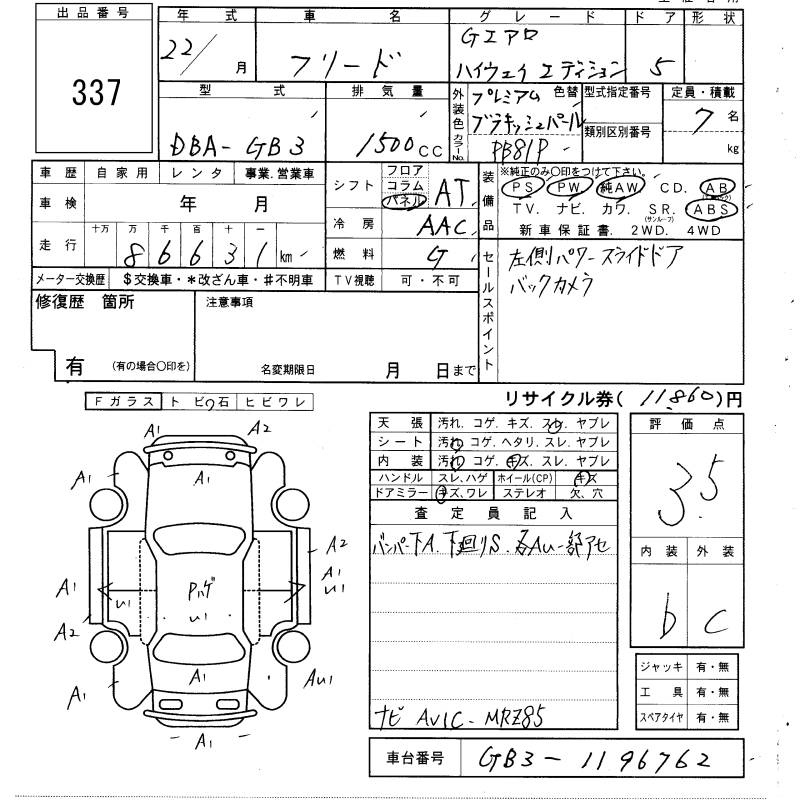 出品番号
337
年 式
22/ 月
車 名
フリード
グレード
Gエアロ
ハイウェイ エディション
ドア
5
形状
型 式
DBA-GB3
排気量
1500cc
外装色
カラーNo.
プレミアム 色替
ブラキッシュパール
PB81P
型式指定番号
類別区別番号
定員・積載
7 名
kg
車歴 自家用 レンタ 事業.営業車
車検 年 月
走行 十万 万 千 百 十 一
86631km
メーター交換歴 $交換車・*改ざん車・#不明車
シフト フロア コラム パネル AT
冷房 AAC
燃料 G
TV視聴 可・不可
装備品
※純正のみ〇印をつけて下さい。
PS PW 純AW CD. AB
TV. ナビ. カワ. SR. ABS
(サンルーフ)
新車保証書. 2WD. 4WD
セールスポイント
左側パワースライドドア
バックカメラ
修復歴 箇所
有 (有の場合〇印を)
注意事項
名変期限日 月 日まで
リサイクル券( 11,860)円
Fガラス トビ石 ヒビワレ
A1 A2
A1 A1
A2
A1
U1
A1
A2
U1
Pハゲ
U1
A1
A1 AU1
A1
天張 汚れ. コゲ. キズ. スレ. ヤブレ
シート 汚れ. コゲ. ヘタリ. スレ. ヤブレ
内装 汚れ. コゲ. キズ. スレ. ヤブレ
ハンドル スレ. ハゲ ホイール(CP) キズ
ドアミラー キズ、ワレ ステレオ 欠、穴
査定員記入
バンパー下A. 下廻りS. 各AU一部アセ
ナビ AVIC-MRZ85
評価点
3.5
内装 外装
b c
ジャッキ 有・無
工具 有・無
スペアタイヤ 有・無
車台番号 GB3-1196762